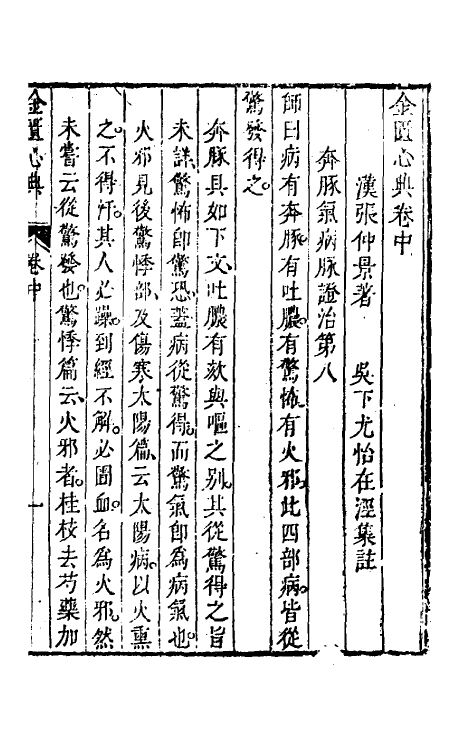 金匱心典卷中
漢張仲景著　吳下尤怡在涇集註
奔豚氣病脉證治第八
師曰病有奔豚。有吐膿。有驚怖。有火邪。此四部病。皆從
驚發得之。
奔豚具如下文、吐膿有欬與嘔之別。其從驚得之旨
未詳。驚怖卽驚恐。葢病從驚得。而驚氣卽爲病氣也。
火邪見後驚悸部、及傷寒太陽篇、云太陽病。以火熏
之。不得汗。其人必躁。到經不解。必圊血。名爲火邪。然
未嘗云從驚發也。驚悸篇云、火邪者。桂枝去芍藥加
金匱心典　卷中　一